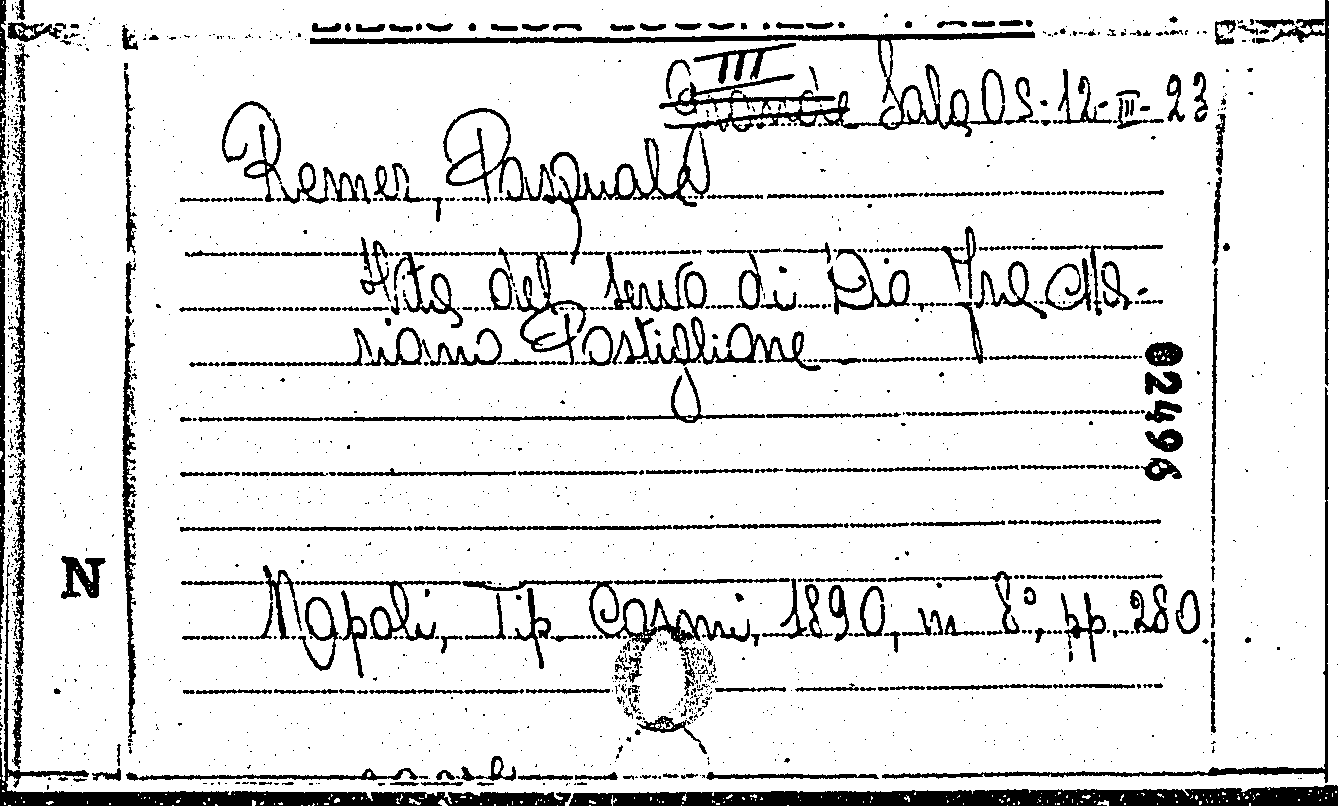 III
Grande Sala OS-12-III-23
Remer, Pasquale
Vita del servo di Dio, Fra Ma-
riano Postiglione
02496
N
Napoli, Tip. Cosmi, 1890, in 8°, pp. 280